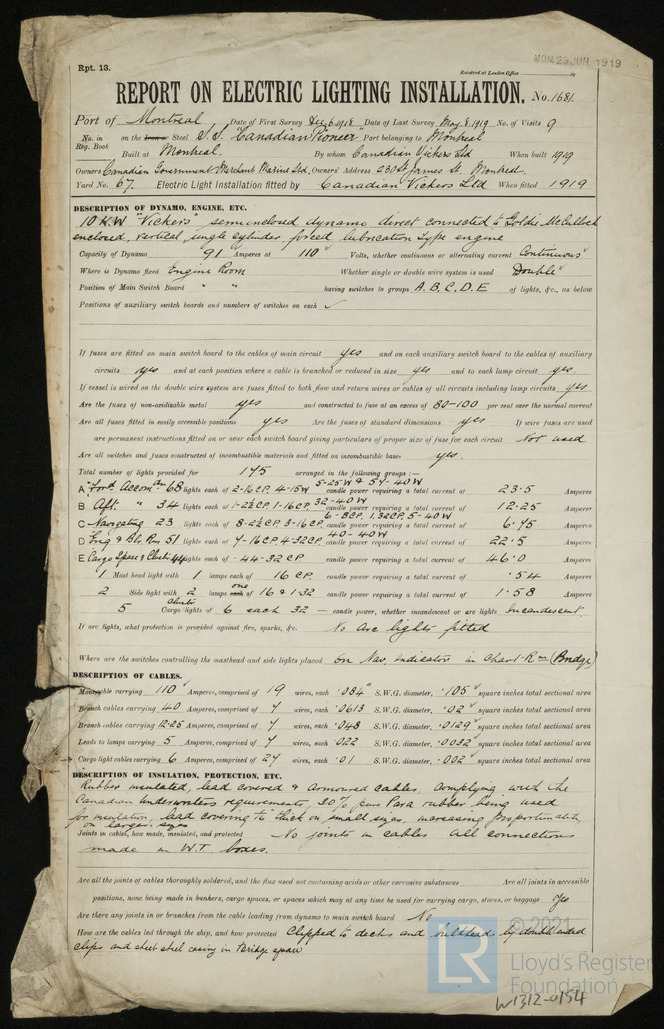 Rpt. 13.
Received at London Office
MON. 23 JUN. 1919
REPORT ON ELECTRIC LIGHTING INSTALLATION. No. 1681.
Port of Montreal Date of First Survey Dec 6. 1918 Date of Last Survey May 8. 1919 No. of Visits 9
No. in Reg. Book on the Iron or Steel S.S. "Canadian Pioneer" Port belonging to Montreal
Built at Montreal. By whom Canadian Vickers Ltd When built 1919
Owners Canadian Government Merchant Marine Ltd, Owners' Address 230 St James St. Montreal.
Yard No. 67. Electric Light Installation fitted by Canadian Vickers Ltd When fitted 1919
DESCRIPTION OF DYNAMO, ENGINE, ETC.
10 K.W "Vickers" semi enclosed dynamo direct connected to Goldie McCulloch
enclosed, vertical, single cylinder, forced lubrication type engine
Capacity of Dynamo 91 Amperes at 110 Volts, whether continuous or alternating current Continuous
Where is Dynamo fixed Engine Room Whether single or double wire system is used Double
Position of Main Switch Board " " having switches to groups A. B. C. D. E of lights, &c., as below
Positions of auxiliary switch boards and numbers of switches on each ✓
If fuses are fitted on main switch board to the cables of main circuit yes and on each auxiliary switch board to the cables of auxiliary
circuits yes and at each position where a cable is branched or reduced in size yes and to each lamp circuit yes.
If vessel is wired on the double wire system are fuses fitted to both flow and return wires or cables of all circuits including lamp circuits yes
Are the fuses of non-oxidizable metal yes and constructed to fuse at an excess of 80-100 per cent over the normal current
Are all fuses fitted in easily accessible positions yes Are the fuses of standard dimensions yes If wire fuses are used
are permanent instructions fitted on or near each switch board giving particulars of proper size of fuse for each circuit Not used
Are all switches and fuses constructed of incombustible materials and fitted on incombustible bases yes.
Total number of lights provided for 175 arranged in the following groups :—
5-25W & 57-40W
A Ford Accom 68 lights each of 2-16 CP. 4-15W candle power requiring a total current of 23.5 Amperes
32-40W
B Aft. " 34 lights each of 1-22CP. 1-16 CP. candle power requiring a total current of 12.25 Amperes
6-8CP. 1.32CP. 5-40W
C Navigating 23 lights each of 8-2½CP. 3-16 CP. candle power requiring a total current of 6.75 Amperes
40-40W
D Eng & Blr Rm 51 lights each of 7-16CP. 4-32CP. candle power requiring a total current of 22.5 Amperes
E Cargo Space & Clusters 44 lights each of -44-32 CP. candle power requiring a total current of 46.0 Amperes
1 Mast head light with 1 lamps each of 16 CP. candle power requiring a total current of .54 Amperes
2 Side light with 2 lamps each one of 16 & 1-32 candle power requiring a total current of 1.58 Amperes
5 clusters Cargo lights of 6 each 32 — candle power, whether incandescent or arc lights Incandescent
If arc lights, what protection is provided against fire, sparks, &c. No arc lights fitted
Where are the switches controlling the masthead and side lights placed On Nav. Indicator in Chart Rm (Bridge)
DESCRIPTION OF CABLES.
Main cable carrying 110 Amperes, comprised of 19 wires, each .084" S.W.G. diameter, .105 square inches total sectional area
Branch cables carrying 40 Amperes, comprised of 7 wires, each .0613 S.W.G. diameter, .02 square inches total sectional area
Branch cables carrying 12.25 Amperes, comprised of 7 wires, each .048 S.W.G. diameter, .0129 square inches total sectional area
Leads to lamps carrying 5 Amperes, comprised of 7 wires, each .022 S.W.G. diameter, .0032 square inches total sectional area
Cargo light cables carrying 6 Amperes, comprised of 27 wires, each .01 S.W.G. diameter, .002 square inches total sectional area
DESCRIPTION OF INSULATION, PROTECTION, ETC.
Rubber insulated, lead covered & armoured cables, complying with the
Canadian Underwriters requirements, 30% pure Para rubber being used
for insulation, lead covering thick on small sizes, increasing proportionately
on larger sizes
Joints in cables, how made, insulated, and protected No joints in cables All connections
made in W.T boxes.
Are all the joints of cables thoroughly soldered, and the flux used not containing acids or other corrosive substances Are all joints in accessible
positions, none being made in bunkers, cargo spaces, or spaces which may at any time be used for carrying cargo, stores, or baggage Yes
Are there any joints in or branches from the cable leading from dynamo to main switch board No
How are the cables led through the ship, and how protected Clipped to decks and bulkheads by double ended
clips and sheet steel casing in Bridge space
© 2021
LR
Lloyd's Register
Foundation
W1312-0154